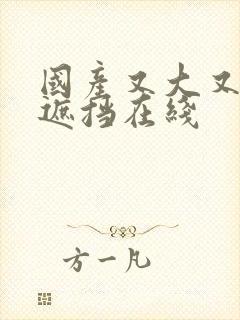 國產又大又
遮挡在綫
方一凡